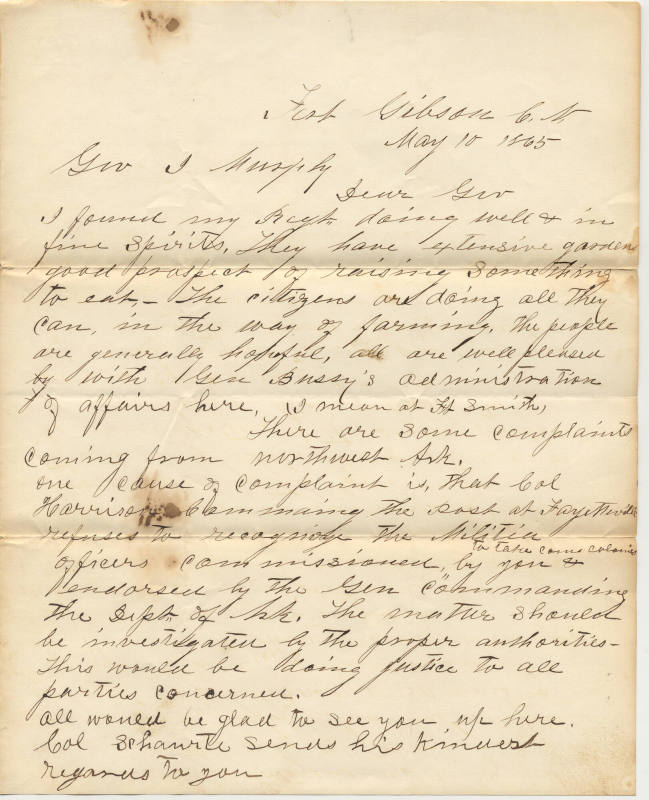 Fort Gibson C. N.
May 10 1865
Gov I Murphy
Dear Gov
I found my Regt. doing well & in
fine spirits. They have extensive garden
good prospect of raising something
to eat,- The citizens are doing all they
can, in the way of farming. the people
are generally hopeful, all are well pleased
by with Gen Bussy's administration
of affairs here, (I mean at Ft Smith,
There are some complaints
coming from northwest Ark.
one cause of complaint is, that Col
Harrison Commaing the Post at Fayetteville
refuses to recognize the Militia
to take come colonies
officers commissioned, by you &
endorsed by the Gen Commanding
the Dept. of Ark. The matter should
be investigated by the proper authorities-
This would be doing justice to all
parties concerned.
all would be glad to see you up here.
Col sends his kindest
regards to you